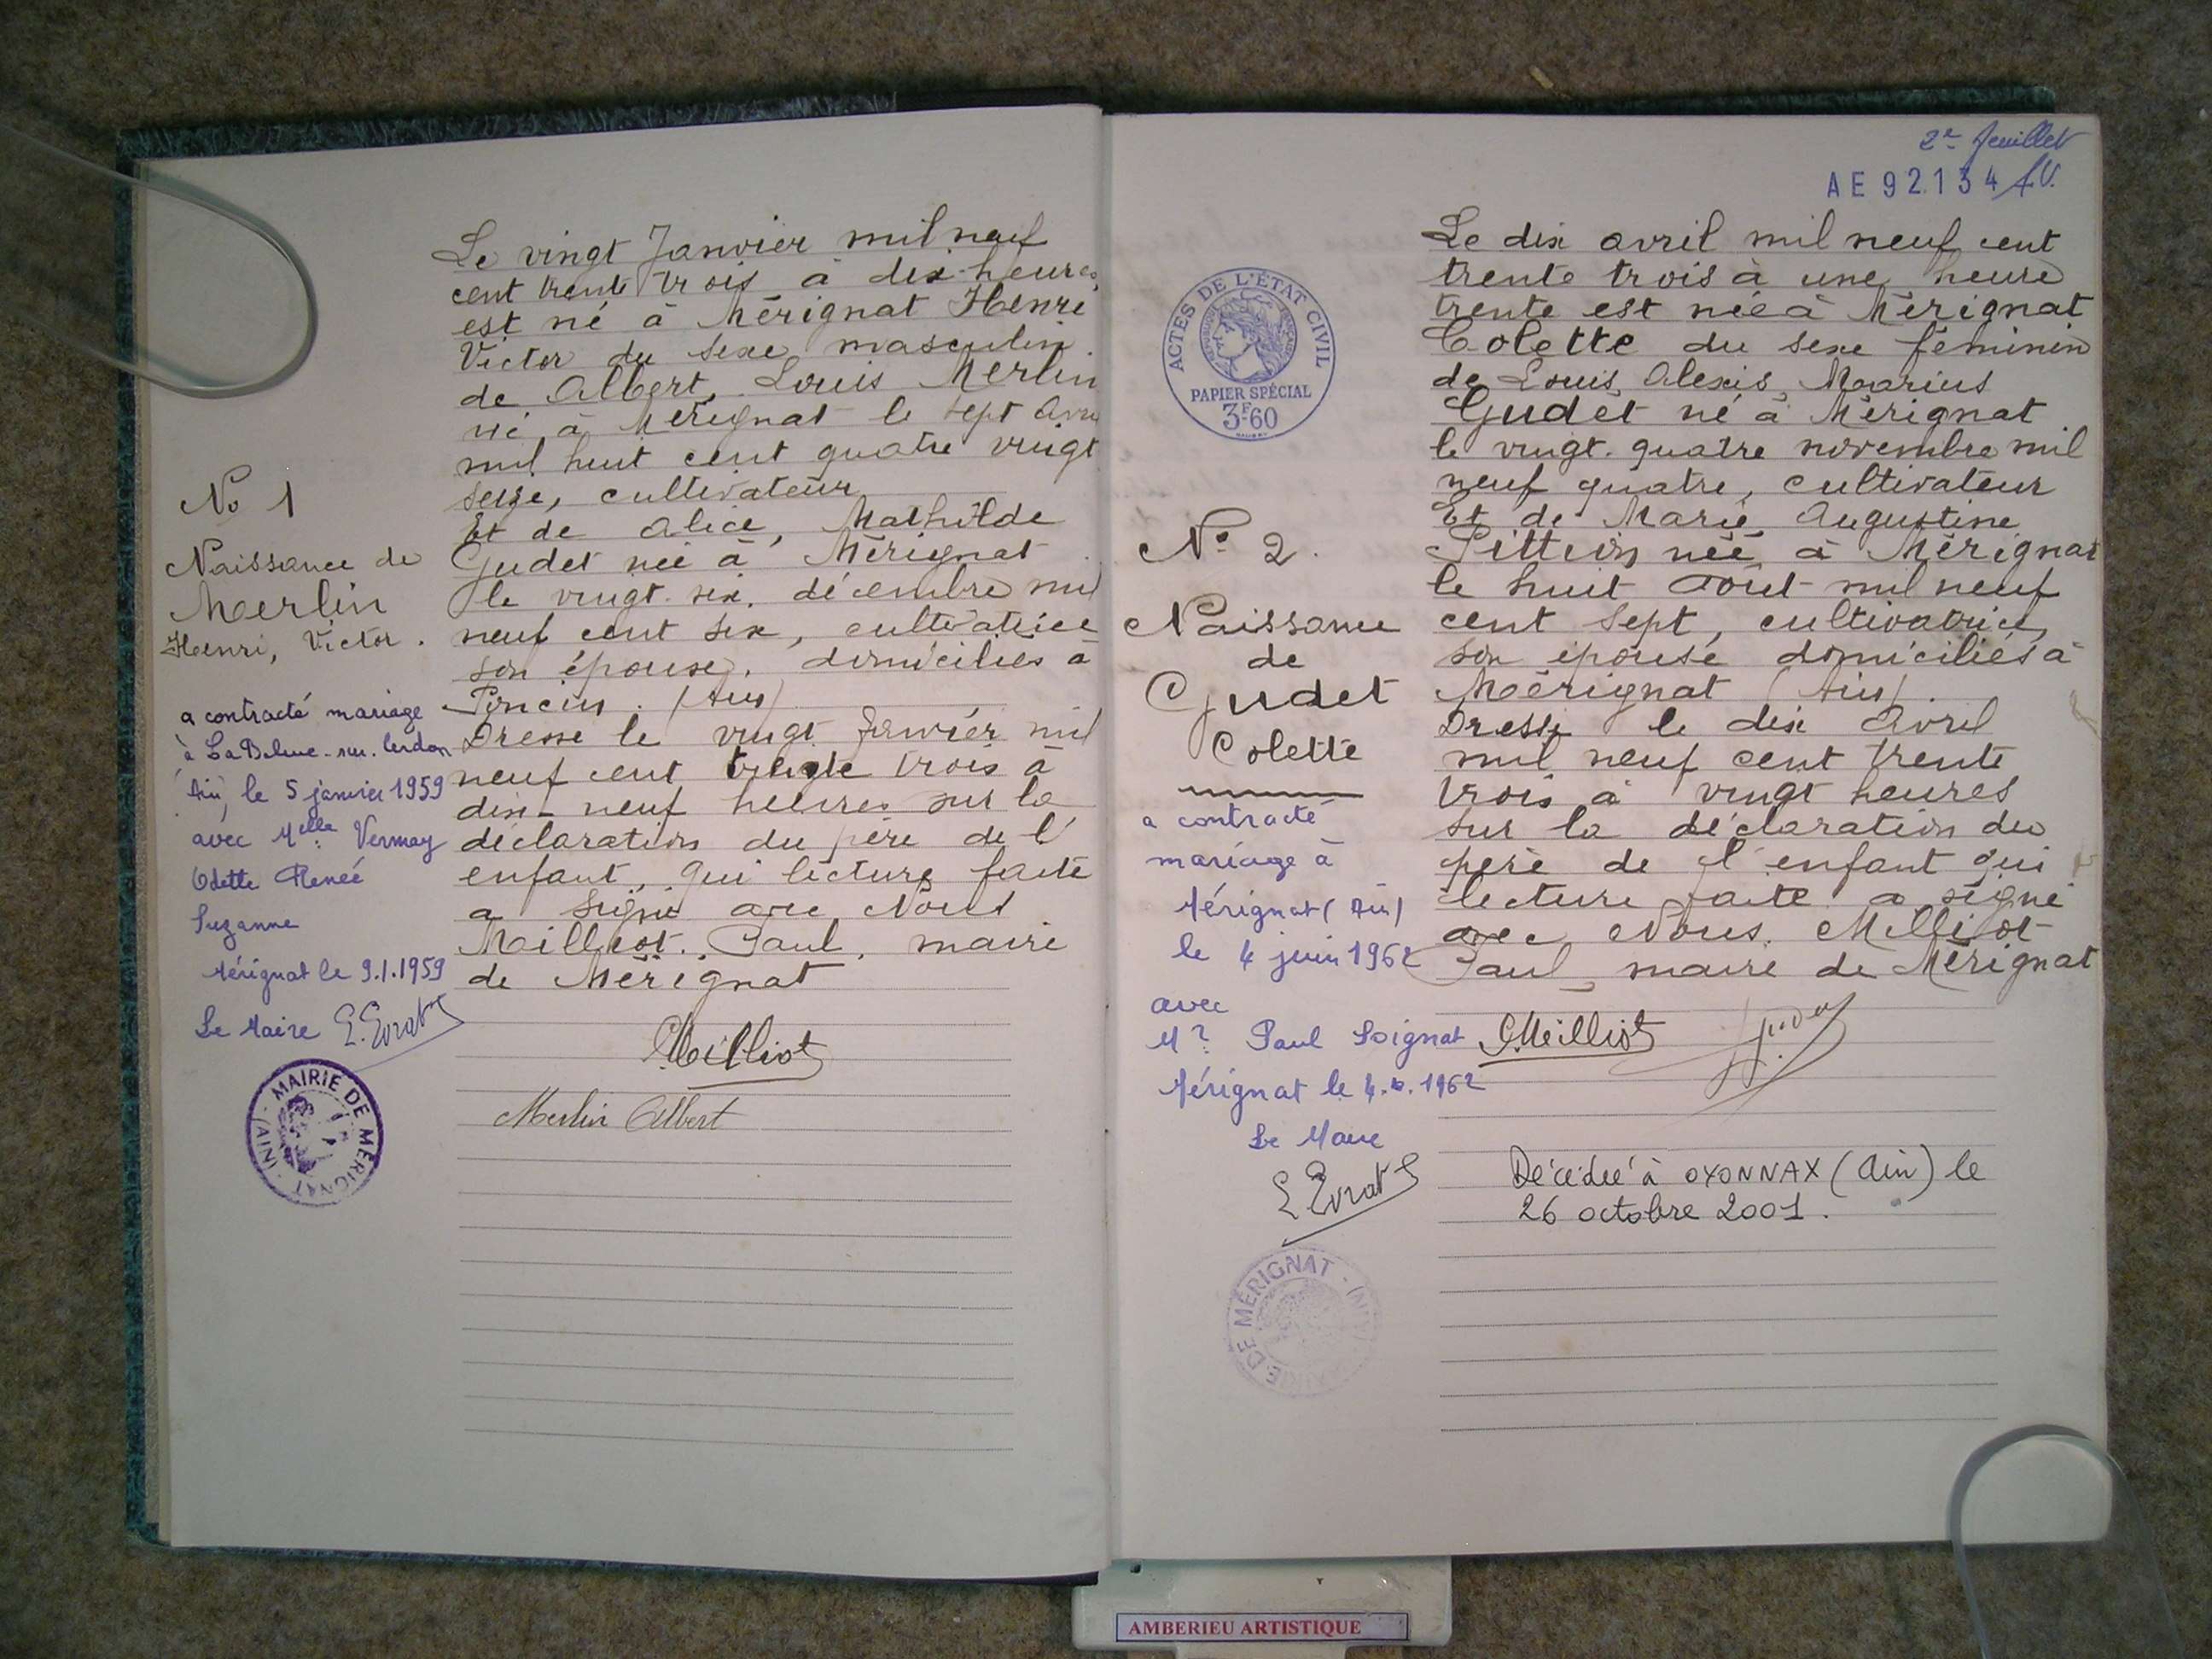 Le vingt Janvier mil neuf
cent trente trois à dix heures
est né à Mérignat Henri
Victor du sexe masculin
de Albert, Louis Merlin
né à Mérignat le sept Avril
mil huit cent quatre vingt
seize, cultivateur
Et de Alice, Mathilde
Gudet née à Mérignat
le vingt six décembre mil
neuf cent six, cultivatrice
son épouse, domiciliés à
Poncin (Ain)
Dressé le vingt Janvier mil
neuf cent trente trois à
dix-neuf heures sur la
déclaration du père de l'
enfant, qui lecture faite
a signé avec Nous
Milliot Paul, maire
de Mérignat
Milliot
Merlin Albert
No 1
Naissance de
Merlin
Henri, Victor.
a contracté mariage
à La Balme-sur-Cerdon
Ain, le 5 janvier 1959
avec Melle Vermay
Odette Renée
Suzanne
Mérignat le 9.1.1959
Le Maire
MAIRIE DE MÉRIGNAT (AIN)
2e feuillet
AE 92.134
ACTES DE L'ÉTAT CIVIL
PAPIER SPÉCIAL
3F60
Le dix avril mil neuf cent
trente trois à une heure
trente est née à Mérignat
Colette du sexe féminin
de Louis, Alexis, Marius
Gudet né à Mérignat
le vingt-quatre novembre mil
neuf quatre, cultivateur
Et de Marie, Augustine
Pittion née à Mérignat
le huit Août mil neuf
cent sept, cultivatrice,
son épouse domiciliés à
Mérignat (Ain).
Dressé le dix Avril
mil neuf cent trente
trois à vingt heures
sur la déclaration du
père de l'enfant qui
lecture faite a signé
avec Nous Milliot
Paul, maire de Mérignat
Milliot
Gudet
Décédée à OYONNAX (Ain) le
26 octobre 2001.
No 2.
Naissance
de
Gudet
Colette
a contracté
mariage à
Mérignat (Ain)
le 4 juin 1962
avec
Mr Paul Soignat
Mérignat le 4.6.1962
Le Maire
MAIRIE DE MÉRIGNAT (AIN)
AMBERIEU ARTISTIQUE